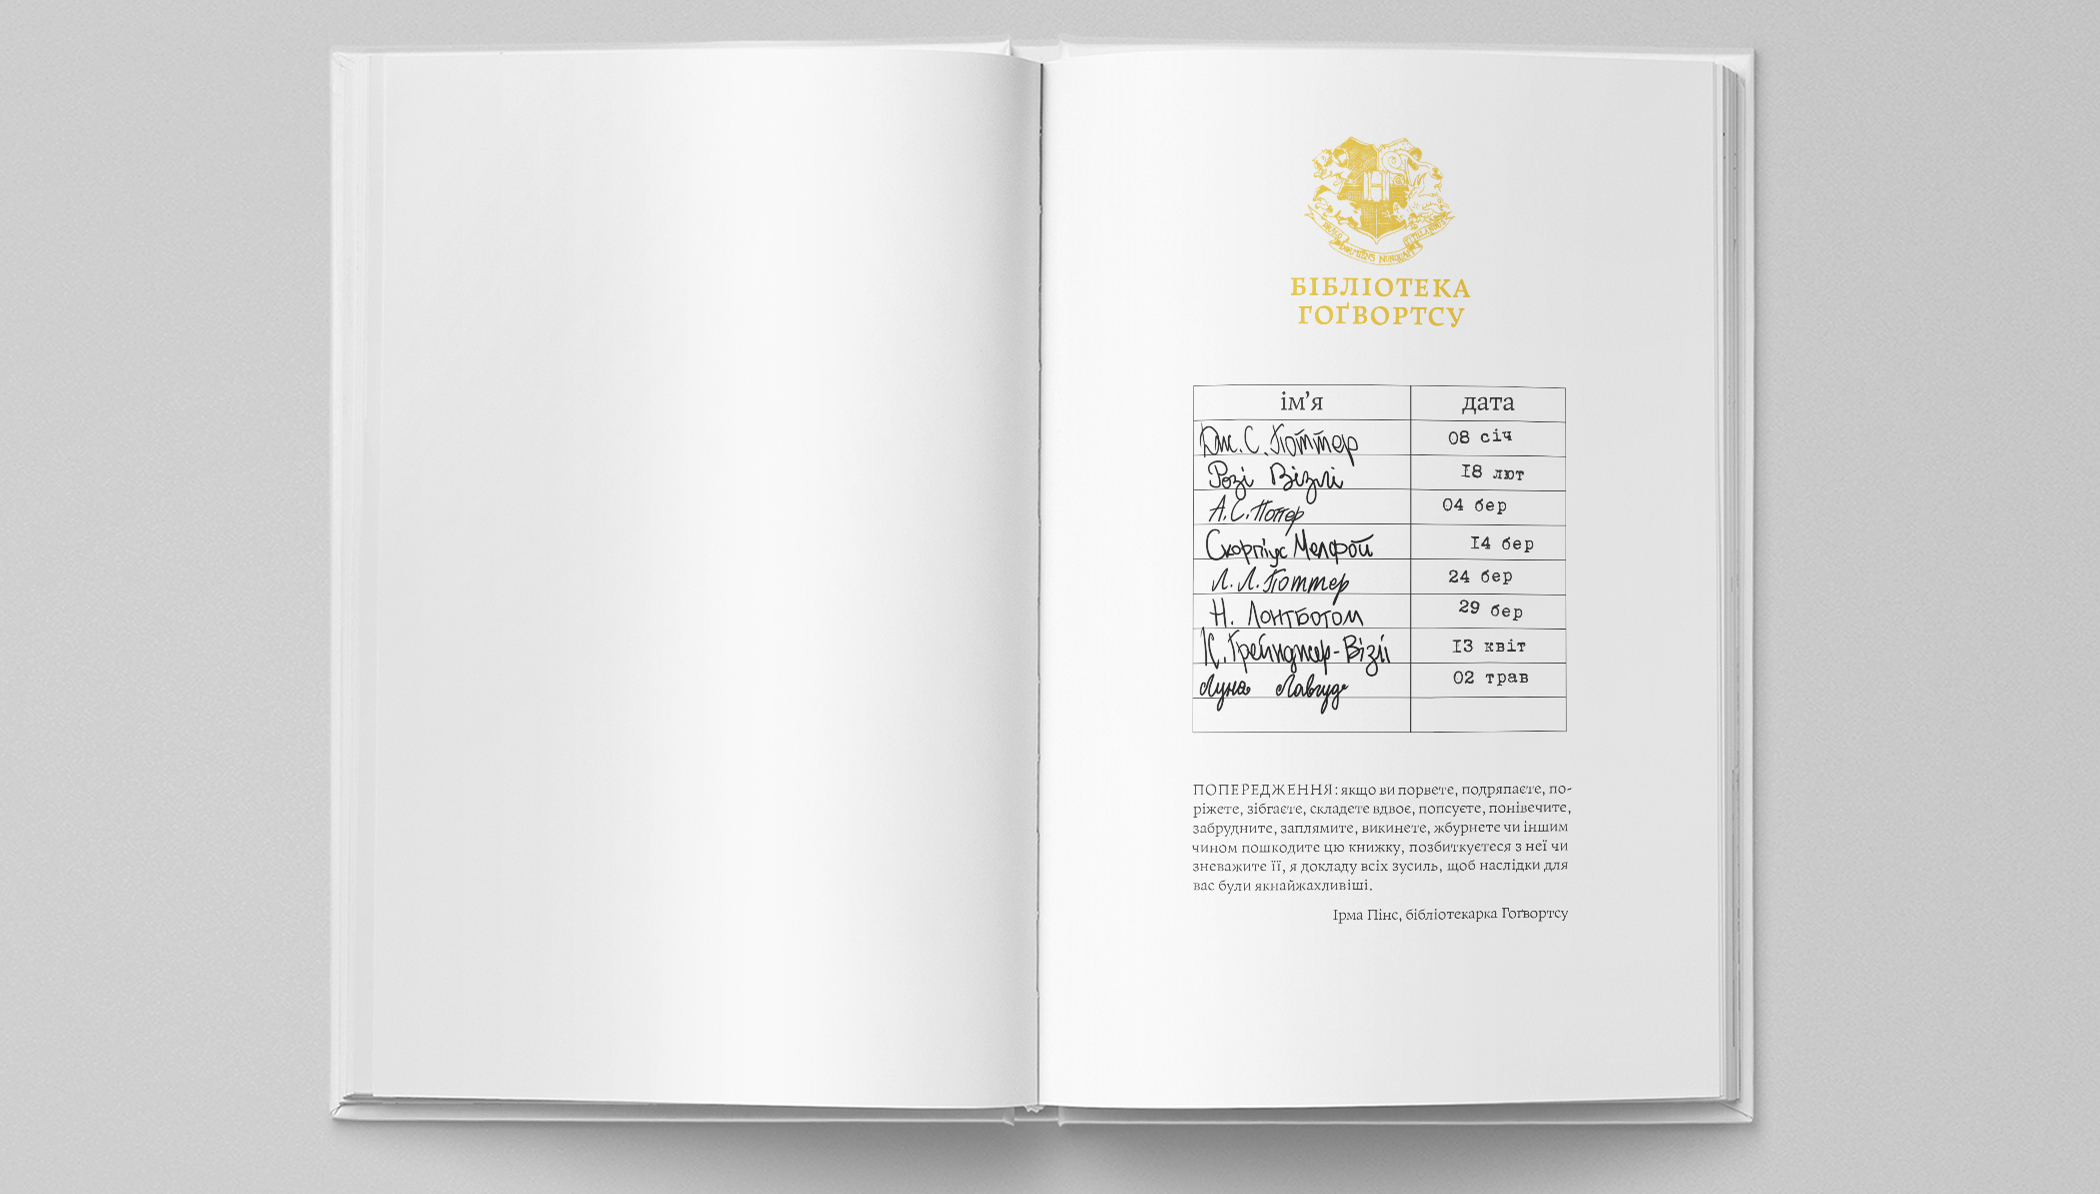 DRACO DORMIENS NUNQUAM TITILLANDUS
БІБЛІОТЕКА
ГОҐВОРТСУ
ім’я дата
Дж. С. Поттер 08 січ
Розі Візлі 18 лют
А. С. Поттер 04 бер
Скорпіус Мелфой 14 бер
Л. Л. Поттер 24 бер
Н. Лонгботом 29 бер
К. Ґрейнджер-Візлі 13 квіт
Луна Лавґуд 02 трав
ПОПЕРЕДЖЕННЯ: якщо ви порвете, подряпаєте, по-
ріжете, зібгаєте, складете вдвоє, попсуєте, понівечите,
забрудните, заплямите, викинете, жбурнете чи іншим
чином пошкодите цю книжку, позбиткуєтеся з неї чи
зневажите її, я докладу всіх зусиль, щоб наслідки для
вас були якнайжахливіші.
Ірма Пінс, бібліотекарка Гоґвортсу